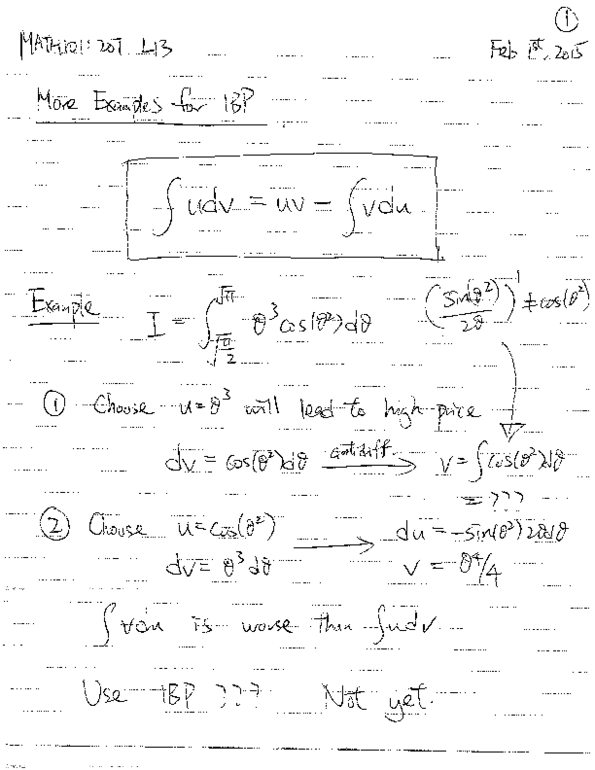 ①
MATH101:207 L13 Feb 1st, 2015
More Examples for IBP
∫udv = uv − ∫vdu
Example I = ∫_{√(π/2)}^{√π} θ³ cos(θ²) dθ (sin(θ²)/2θ)' ≠ cos(θ²)
① Choose u=θ³ will lead to high price
dv = cos(θ²)dθ antidiff → v = ∫cos(θ²)dθ
= ???
② Choose u=cos(θ²) → du = −sin(θ²) 2θdθ
dv = θ³dθ v = θ⁴/4
∫vdu is worse than ∫udv.
Use IBP ??? Not yet.